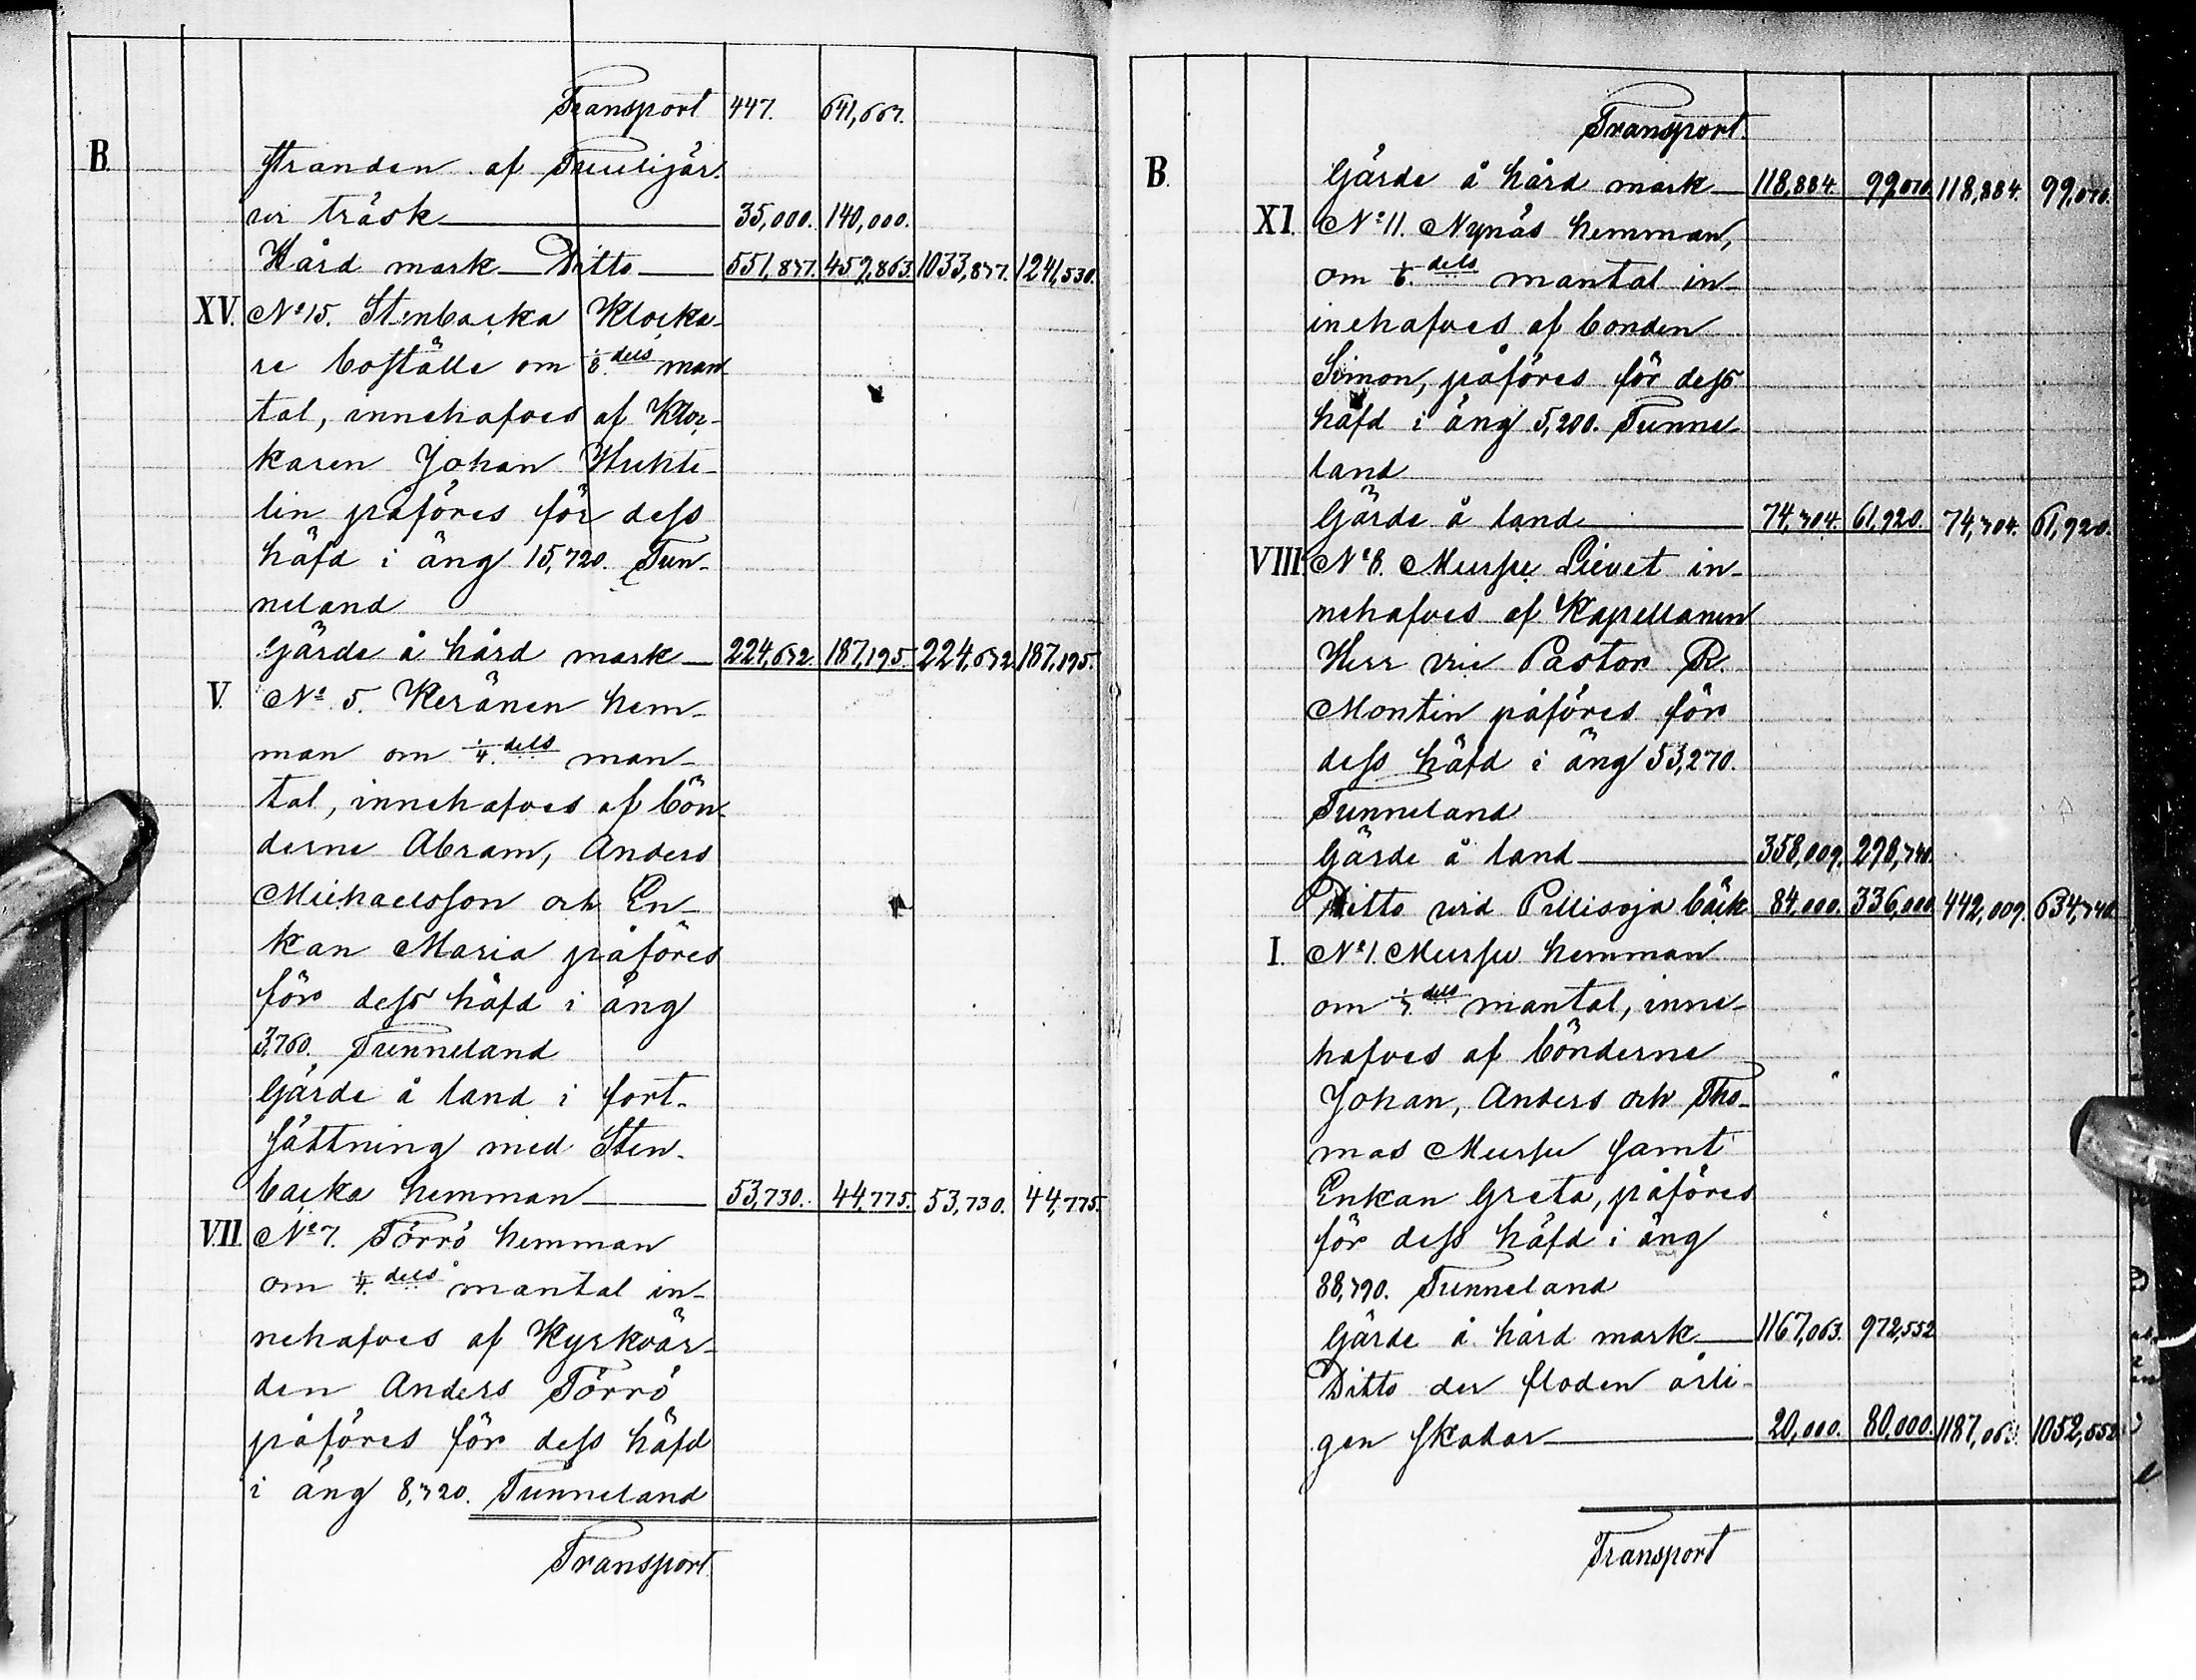 Transport 447. 641,667.
B. stranden af Tuulijär-
vi träsk 35,000. 140,000.
Hård mark Ditto 551,837. 459,863. 1033,837. 1241,530.
XV. No 15. Stenbacka Klocka-
re boställe om 1/8 dels man-
tal, innehafves af Kloc-
karen Johan
lin påföres för dess
häfd i äng 15,720. Tun-
neland
Gärde å hård mark 224,632. 187,195. 224,632. 187,195.
V. No 5. Keränen hem-
man om 1/4 dels man-
tal, innehafves af bön-
derne Abram, Anders
Michaelsson och En-
kan Maria påföres
för dess häfd i äng
3,760. Tunneland
Gärde å land i fort-
sättning med Sten-
backa hemman 53,730. 44,775. 53,730. 44,775.
VII. No 7. Törrö hemman
om 1/4 dels mantal in-
nehafves af Kyrkvär-
den Anders Törrö
påföres för dess häfd
i äng 8,320. Tunneland
Transport
Transport
B. Gärde å hård mark 118,884. 99,070. 118,884. 99,070.
XI. No 11. Nynäs hemman,
om 1/6 dels mantal in-
nehafves af bonden
Simon, påföres för dess
häfd i äng 5,200. Tunne-
land
Gärde å land 74,304. 61,920. 74,304. 61,920.
VIII. No 8. Mursu Lievet in-
nehafves af Kapellanen
Herr vice Pastor R.
Montin påföres för
dess häfd i äng 53,270.
Tunneland
Gärde å land 358,009. 298,340.
Ditto vid Pellisoja bäck 84,000. 336,000. 442,009. 634,340.
I. No 1. Mursu hemman
om 1/3 dels mantal, inne-
hafves af bönderne
Johan, Anders och Tho-
mas Mursu samt
Enkan Greta, påföres
för dess häfd i äng
88,390. Tunneland
Gärde å hård mark 1167,063. 972,552
Ditto der floden årli-
gen skadar 20,000. 80,000. 1187,063. 1052,552
Transport